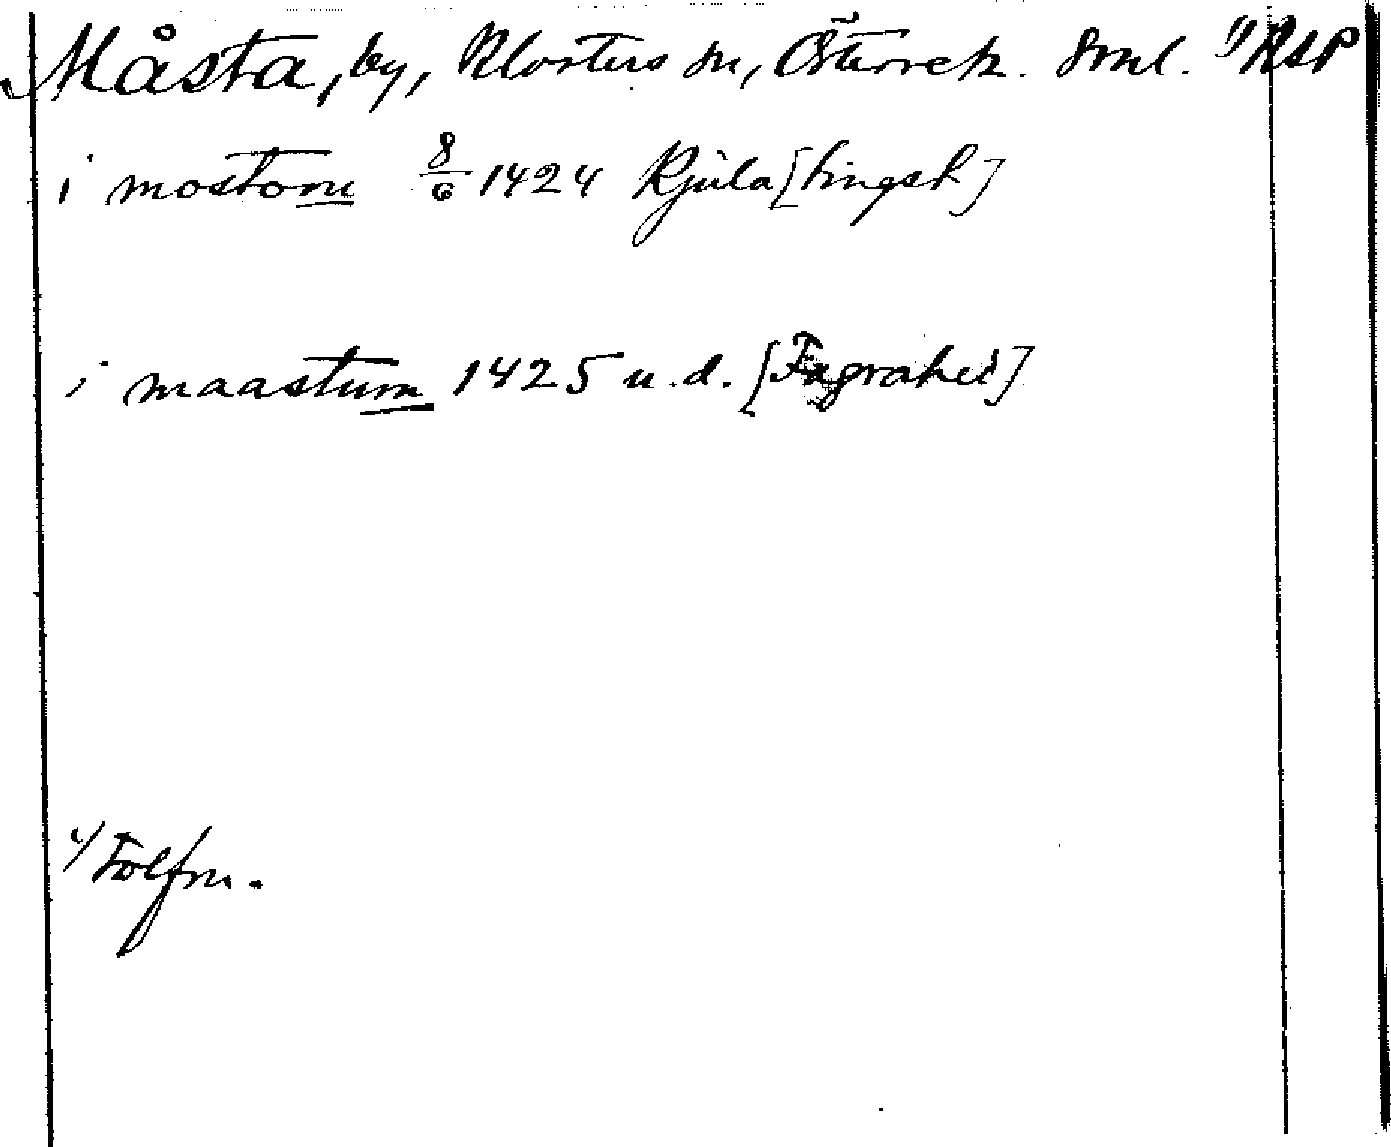 Måsta, by, Klosters sn, Österrek. Sml. 1) RAP
i mostom 8/6 1424 Kjula [tingsh]
i maastum 1425 u.d. [Fagrahed]
1) Folfm.